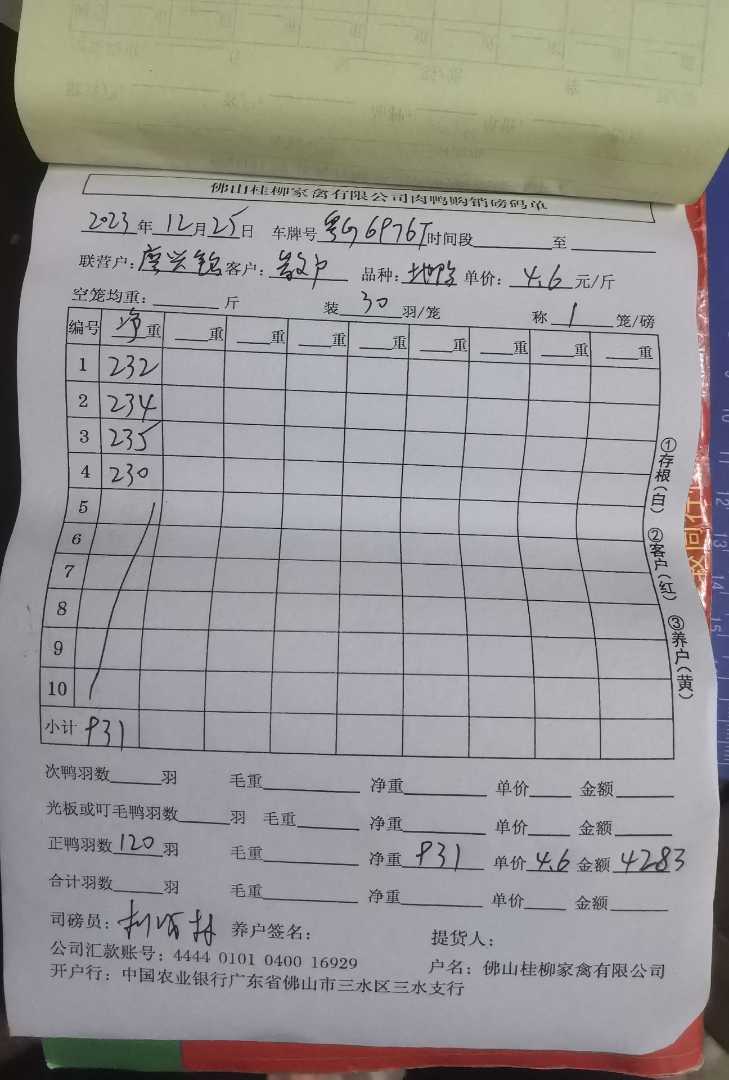 佛山桂柳家禽有限公司肉鸭购销磅码单
2023年 12月25日 车牌号 粤G6976T 时间段 至
联营户: 客户: 品种: 单价: 4.6 元/斤
空笼均重: 斤 装 30 羽/笼 称 1 笼/磅
编号 净重 重 重 重 重 重 重 重 重
1 232
2 234
3 235
4 230
5
6
7
8
9
10
小计 931
①存根(白) ②客户(红) ③养户(黄)
次鸭羽数 羽 毛重 净重 单价 金额
光板或叮毛鸭羽数 羽 毛重 净重 单价 金额
正鸭羽数 120 羽 毛重 净重 931 单价 4.6 金额 4283
合计羽数 羽 毛重 净重 单价 金额
司磅员: 养户签名: 提货人:
公司汇款账号: 4444 0101 0400 16929 户名: 佛山桂柳家禽有限公司
开户行: 中国农业银行广东省佛山市三水区三水支行